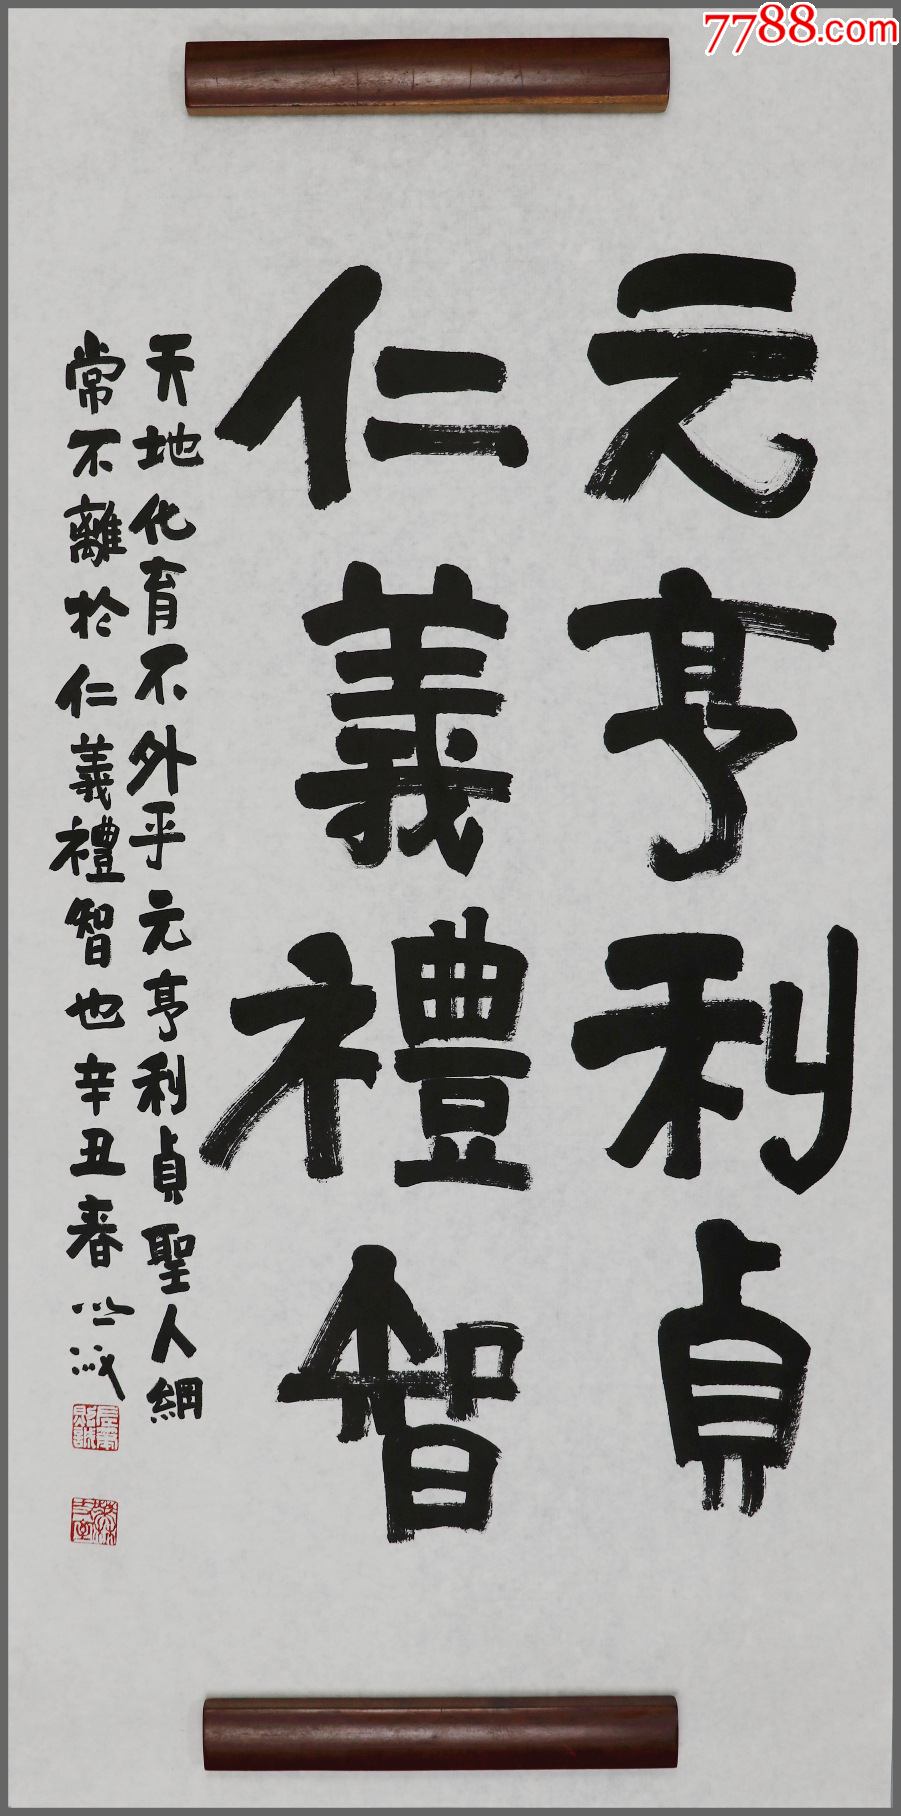 7788.com
元亨利貞
仁義禮智
天地化育不外乎元亨利貞聖人綱
常不離於仁義禮智也辛丑春